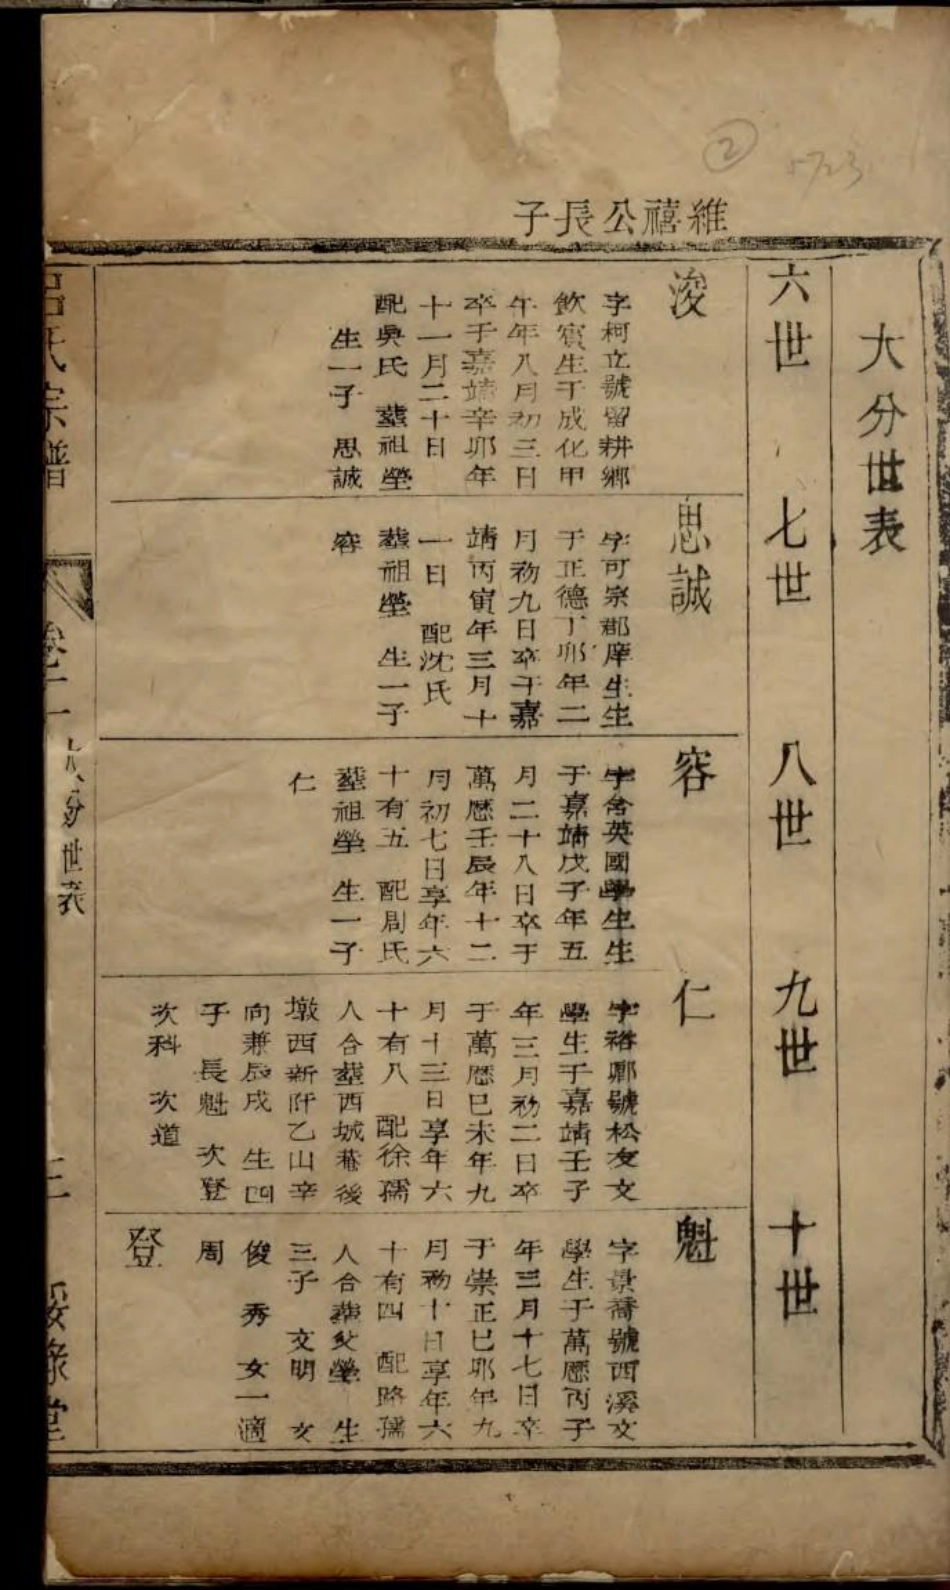 維禧公長子
大分世表
六世
七世
八世
九世
十世
浚
字柯立號留耕鄉
飲賓生于成化甲
午年八月初三日
卒于嘉靖辛卯年
十一月二十日
配吳氏 葬祖塋
生一子 思誠
思誠
字可宗郡庠生生
于正德丁卯年二
月初九日卒于嘉
靖丙寅年三月十
一日 配沈氏
葬祖塋 生一子
容
容
字含英國學生生
于嘉靖戊子年五
月二十八日卒于
萬歷壬辰年十二
月初七日享年六
十有五 配周氏
葬祖塋 生一子
仁
仁
字裕卿號松友文
學生于嘉靖壬子
年三月初二日卒
于萬歷巳未年九
月十三日享年六
十有八 配徐孺
人合葬西城菴後
墩西新阡乙山辛
向兼辰戌 生四
子 長魁 次登
次科 次道
魁
字景喬號西溪文
學生于萬歷丙子
年三月十七日卒
于崇正巳卯年九
月初十日享年六
十有四 配路孺
人合葬父塋 生
三子 文明 文
俊 秀 女一適
周
登
呂氏宗譜
卷二 大分世表
三